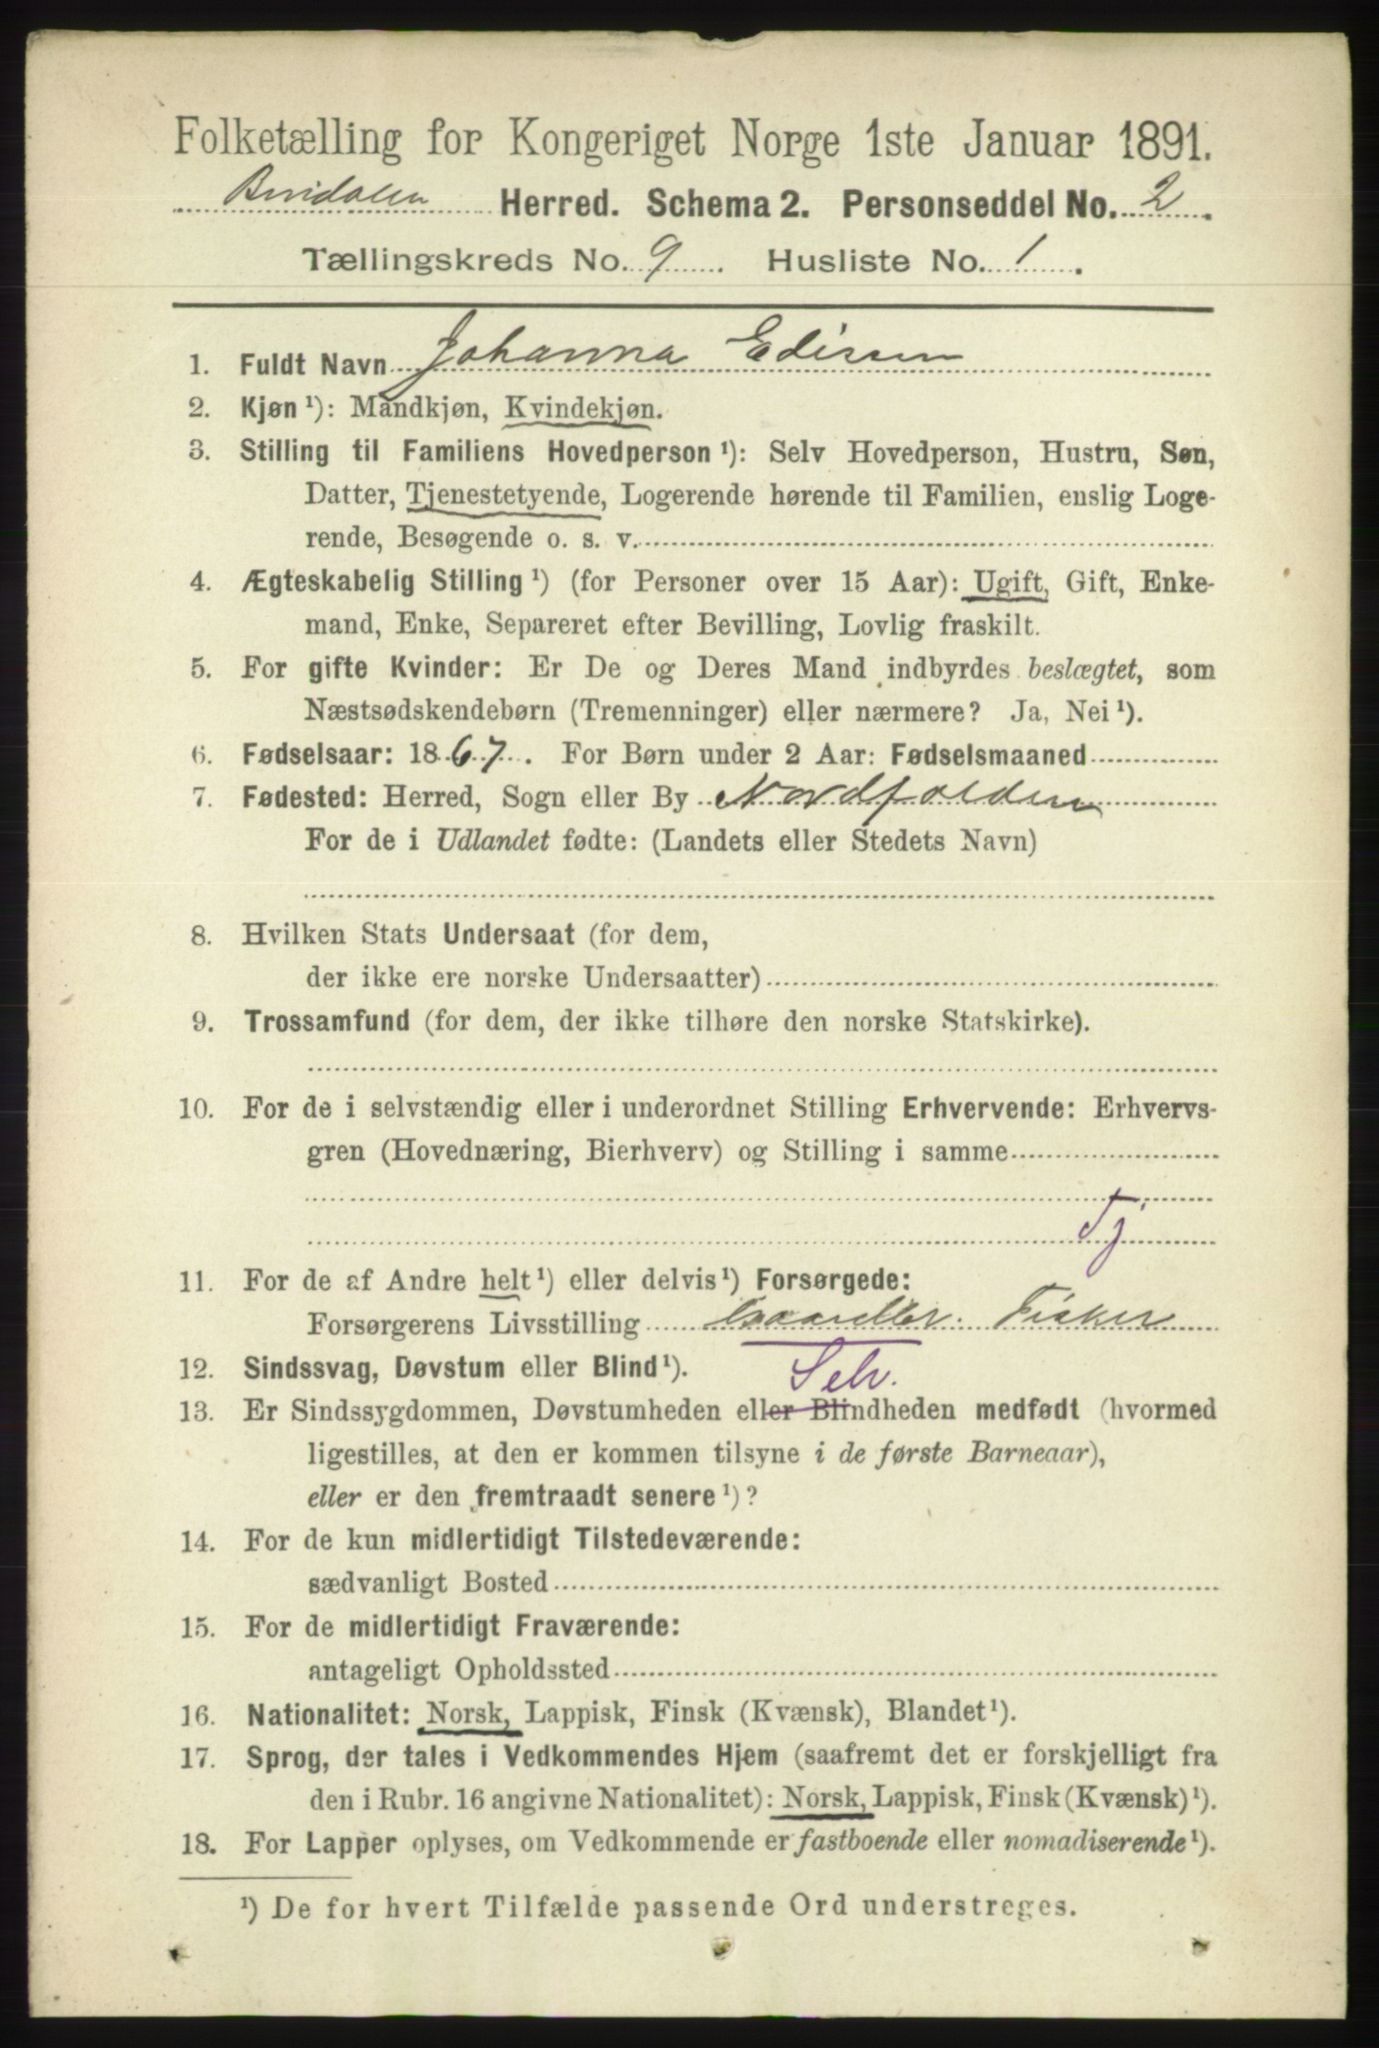 Folketælling for Kongeriget Norge 1ste Januar 1891.
Herred. Schema 2. Personseddel No. 2.
Tællingskreds No. 9. Husliste No. 1.
1. Fuldt Navn Johanna Edisen
2. Kjøn ¹): Mandkjøn, Kvindekjøn.
3. Stilling til Familiens Hovedperson ¹): Selv Hovedperson, Hustru, Søn,
Datter, Tjenestetyende, Logerende hørende til Familien, enslig Loge-
rende, Besøgende o. s. v.
4. Ægteskabelig Stilling ¹) (for Personer over 15 Aar): Ugift, Gift, Enke-
mand, Enke, Separeret efter Bevilling, Lovlig fraskilt.
5. For gifte Kvinder: Er De og Deres Mand indbyrdes beslægtet, som
Næstsødskendebørn (Tremenninger) eller nærmere? Ja, Nei ¹).
6. Fødselsaar: 1867. For Børn under 2 Aar: Fødselsmaaned
7. Fødested: Herred, Sogn eller By Nordfolden
For de i Udlandet fødte: (Landets eller Stedets Navn)
8. Hvilken Stats Undersaat (for dem,
der ikke ere norske Undersaatter)
9. Trossamfund (for dem, der ikke tilhøre den norske Statskirke).
10. For de i selvstændig eller i underordnet Stilling Erhvervende: Erhvervs-
gren (Hovednæring, Bierhverv) og Stilling i samme
Tj
11. For de af Andre helt ¹) eller delvis ¹) Forsørgede:
Forsørgerens Livsstilling Fisker
12. Sindssvag, Døvstum eller Blind ¹). Selv.
13. Er Sindssygdommen, Døvstumheden eller Blindheden medfødt (hvormed
ligestilles, at den er kommen tilsyne i de første Barneaar),
eller er den fremtraadt senere ¹)?
14. For de kun midlertidigt Tilstedeværende:
sædvanligt Bosted
15. For de midlertidigt Fraværende:
antageligt Opholdssted
16. Nationalitet: Norsk, Lappisk, Finsk (Kvænsk), Blandet ¹).
17. Sprog, der tales i Vedkommendes Hjem (saafremt det er forskjelligt fra
den i Rubr. 16 angivne Nationalitet): Norsk, Lappisk, Finsk (Kvænsk) ¹).
18. For Lapper oplyses, om Vedkommende er fastboende eller nomadiserende ¹).
¹) De for hvert Tilfælde passende Ord understreges.